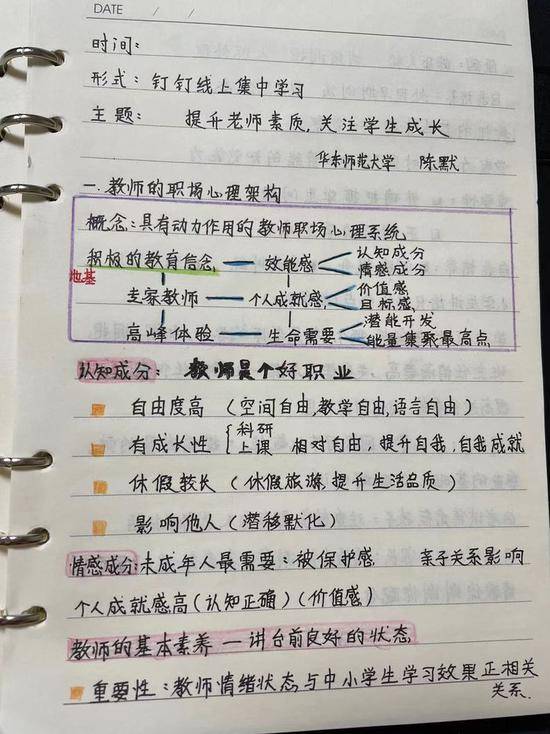 DATE / /
时间:
形式: 钉钉线上集中学习
主题: 提升老师素质,关注学生成长
华东师范大学 陈默
一.教师的职场心理架构
概念:具有动力作用的教师职场心理系统
积极的教育信念 — 效能感 认知成分
情感成分
地基
专家教师 — 个人成就感 价值感
目标感
高峰体验 — 生命需要 潜能开发
能量集聚最高点
认知成分: 教师是个好职业
自由度高 (空间自由,教学自由,语言自由)
有成长性 { 科研
上课 相对自由, 提升自我,自我成就
休假较长 (休假旅游,提升生活品质)
影响他人 (潜移默化)
情感成分:未成年人最需要:被保护感 亲子关系影响
个人成就感高(认知正确)(价值感)
教师的基本素养 — 讲台前良好的状态
重要性:教师情绪状态与中小学生学习效果正相关
关系.